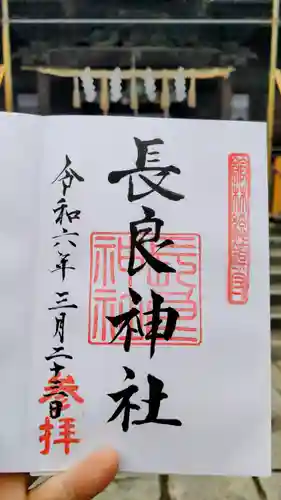 長良神社
長良神社
令和六年三月二十三日
参拝